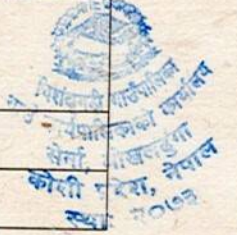 चिशंखुगढी गाउँपालिका
गाउँ कार्यपालिकाको कार्यालय
सेर्ना, ओखलढुंगा
कोशी प्रदेश, नेपाल
स्था २०७३